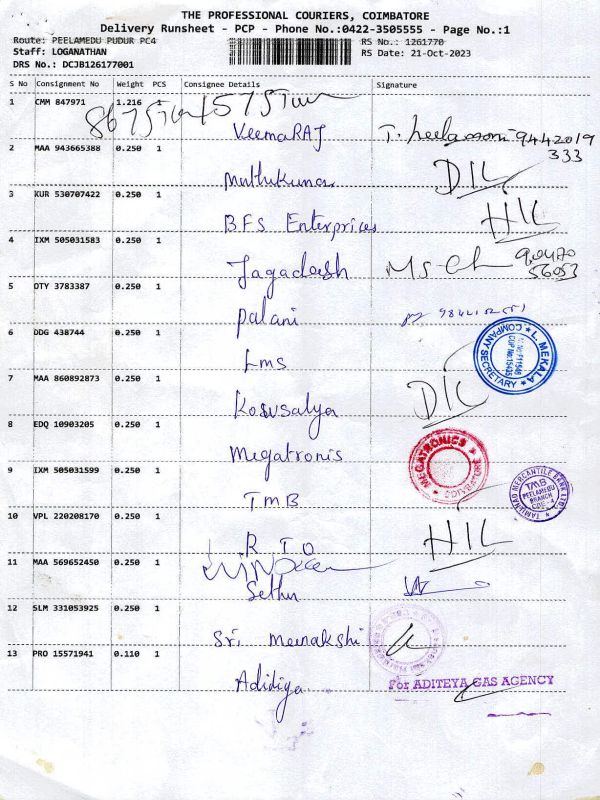 THE PROFESSIONAL COURIERS, COIMBATORE
Delivery Runsheet - PCP - Phone No.:0422-3505555 - Page No.:1
Route: PEELAMEDU PUDUR PC4
RS No.: 1261770
Staff: LOGANATHAN
RS Date: 21-Oct-2023
DRS No.: DCJB126177001
S No Consignment No Weight PCS Consignee Details Signature
1 CMM 847971 1.216 1
VeemaRAJ 9442019
333
2 MAA 943665388 0.250 1
Muthukumar DIL
3 KUR 530707422 0.250 1
BFS Enterprices HIL
4 IXM 505031583 0.250 1
Jagadeesh 90470
56053
5 OTY 3783387 0.250 1
Palani
6 DDG 438744 0.250 1
Lms
L. MEKALA
COMPANY SECRETARY
7 MAA 860892873 0.250 1
Kosusalya DIL
8 EDQ 10903205 0.250 1
Megatronis
MEGATRONICS
COIMBATORE
9 IXM 505031599 0.250 1
TMB
TAMILNAD MERCANTILE BANK LTD.
TMB
PEELAMEDU
BRANCH
CBE-4
10 VPL 220208170 0.250 1
R T O HIL
11 MAA 569652450 0.250 1
Sethu
12 SLM 331053925 0.250 1
Sri Meenakshi
13 PRO 15571941 0.110 1
Aditiya
For ADITEYA GAS AGENCY